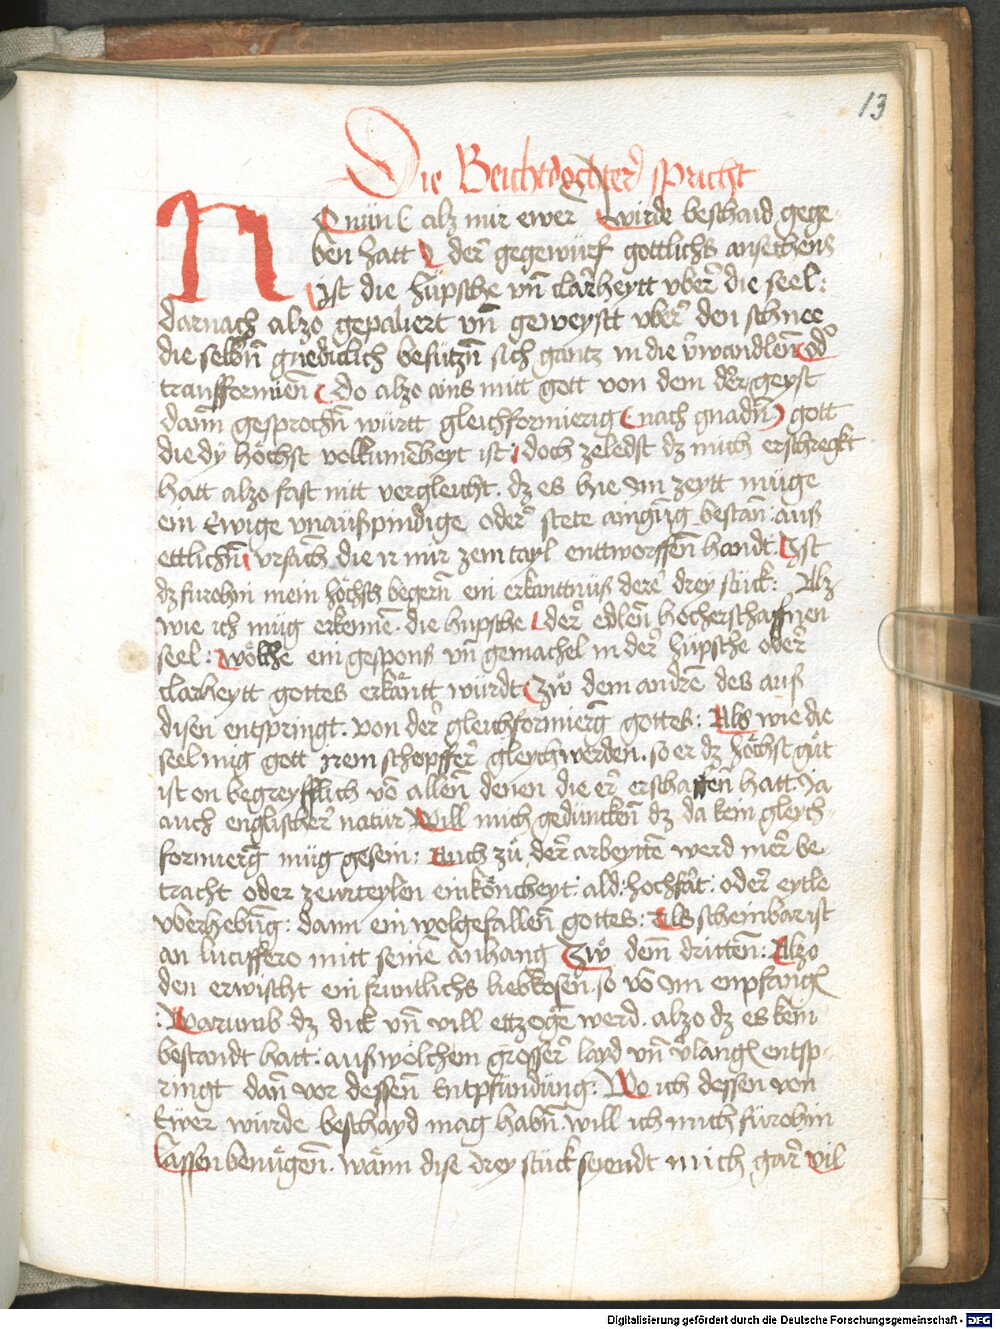 13
Die Beichtdochter spricht
Nun alz mir ewer wirde beschaid gege
ben hatt der gegewürf gottlichs ansechens
ist die hüpsche vn̄ clarheytt vber die seel:
darnach alzo gepaliert vn̄ geweystt vber den schnee
die selbn̄ gnediclich besützn̄ sich gantz in die v̄wandlen̄ od̄
transformien̄ do alzo ains mitt gott von dem der geyst
dan̄ gesprochn̄ württ gleichformierig nach gnadn̄ gott
die dy höchst volkumēheyt ist doch zeledst dz mich erschregkt
hatt alzo fast mitt vergleicht. dz es hie im zeytt müge
ein Ewige vnaußpindige oder stete aingūg bestan̄: auß
ettlichn̄ vrsach die ir mir zem tayl enttworffen handt. Ist
dz furohin mein höchsts begern̄ ein erkantnüß derer drey stück: Alz
wie ich müg erkennē. die hupsche der edlen̄ hocherschaffnen
seel: wölche ein gespons vn̄ gemachel in der hüpsche oder
clarheytt gottes erkantt würdt Zw̄ dem andrē des auß
disen entspringt. von der gleichformierḡ gottes: Als wie die
seel mig gott irem schopffer gleych werden. so er dz höchst gůt
ist on begreyfflich vō allen̄ denen die er erschaffen̄ hatt. Ja
auch englischer natur Will mich gedüncken̄ dz da kein gleych
formierḡ müg gesein: Auch zů der arbeyttē werd mer be
tracht oder zeurteylen einköncheyt: ald: hochfart: oder eytle
vberhebūg: dann ein wolgefallen̄ gottes: Als scheinbar ist
an luciffero mitt seinē anhang Zw̄ dem̄ dritten̄: Alzo
den erwischt ein fruntlichs liebkosen̄ so vō im enpfang
Warumb dz dick vn̄ vill ettzogē werd. alzo dz es kein
bestandt hatt: auß wölchem grosser layd vn̄ v̄lang entsp
ringt dan̄ vor dessen̄ Entpfindūng: Wo ich dessen von
Ewer wurde beschayd mag habn̄. will ich mich fürohin
lassen benügen̄. wann dise drey stück seyendt mich gar vil
Digitalisierung gefördert durch die Deutsche Forschungsgemeinschaft - DFG